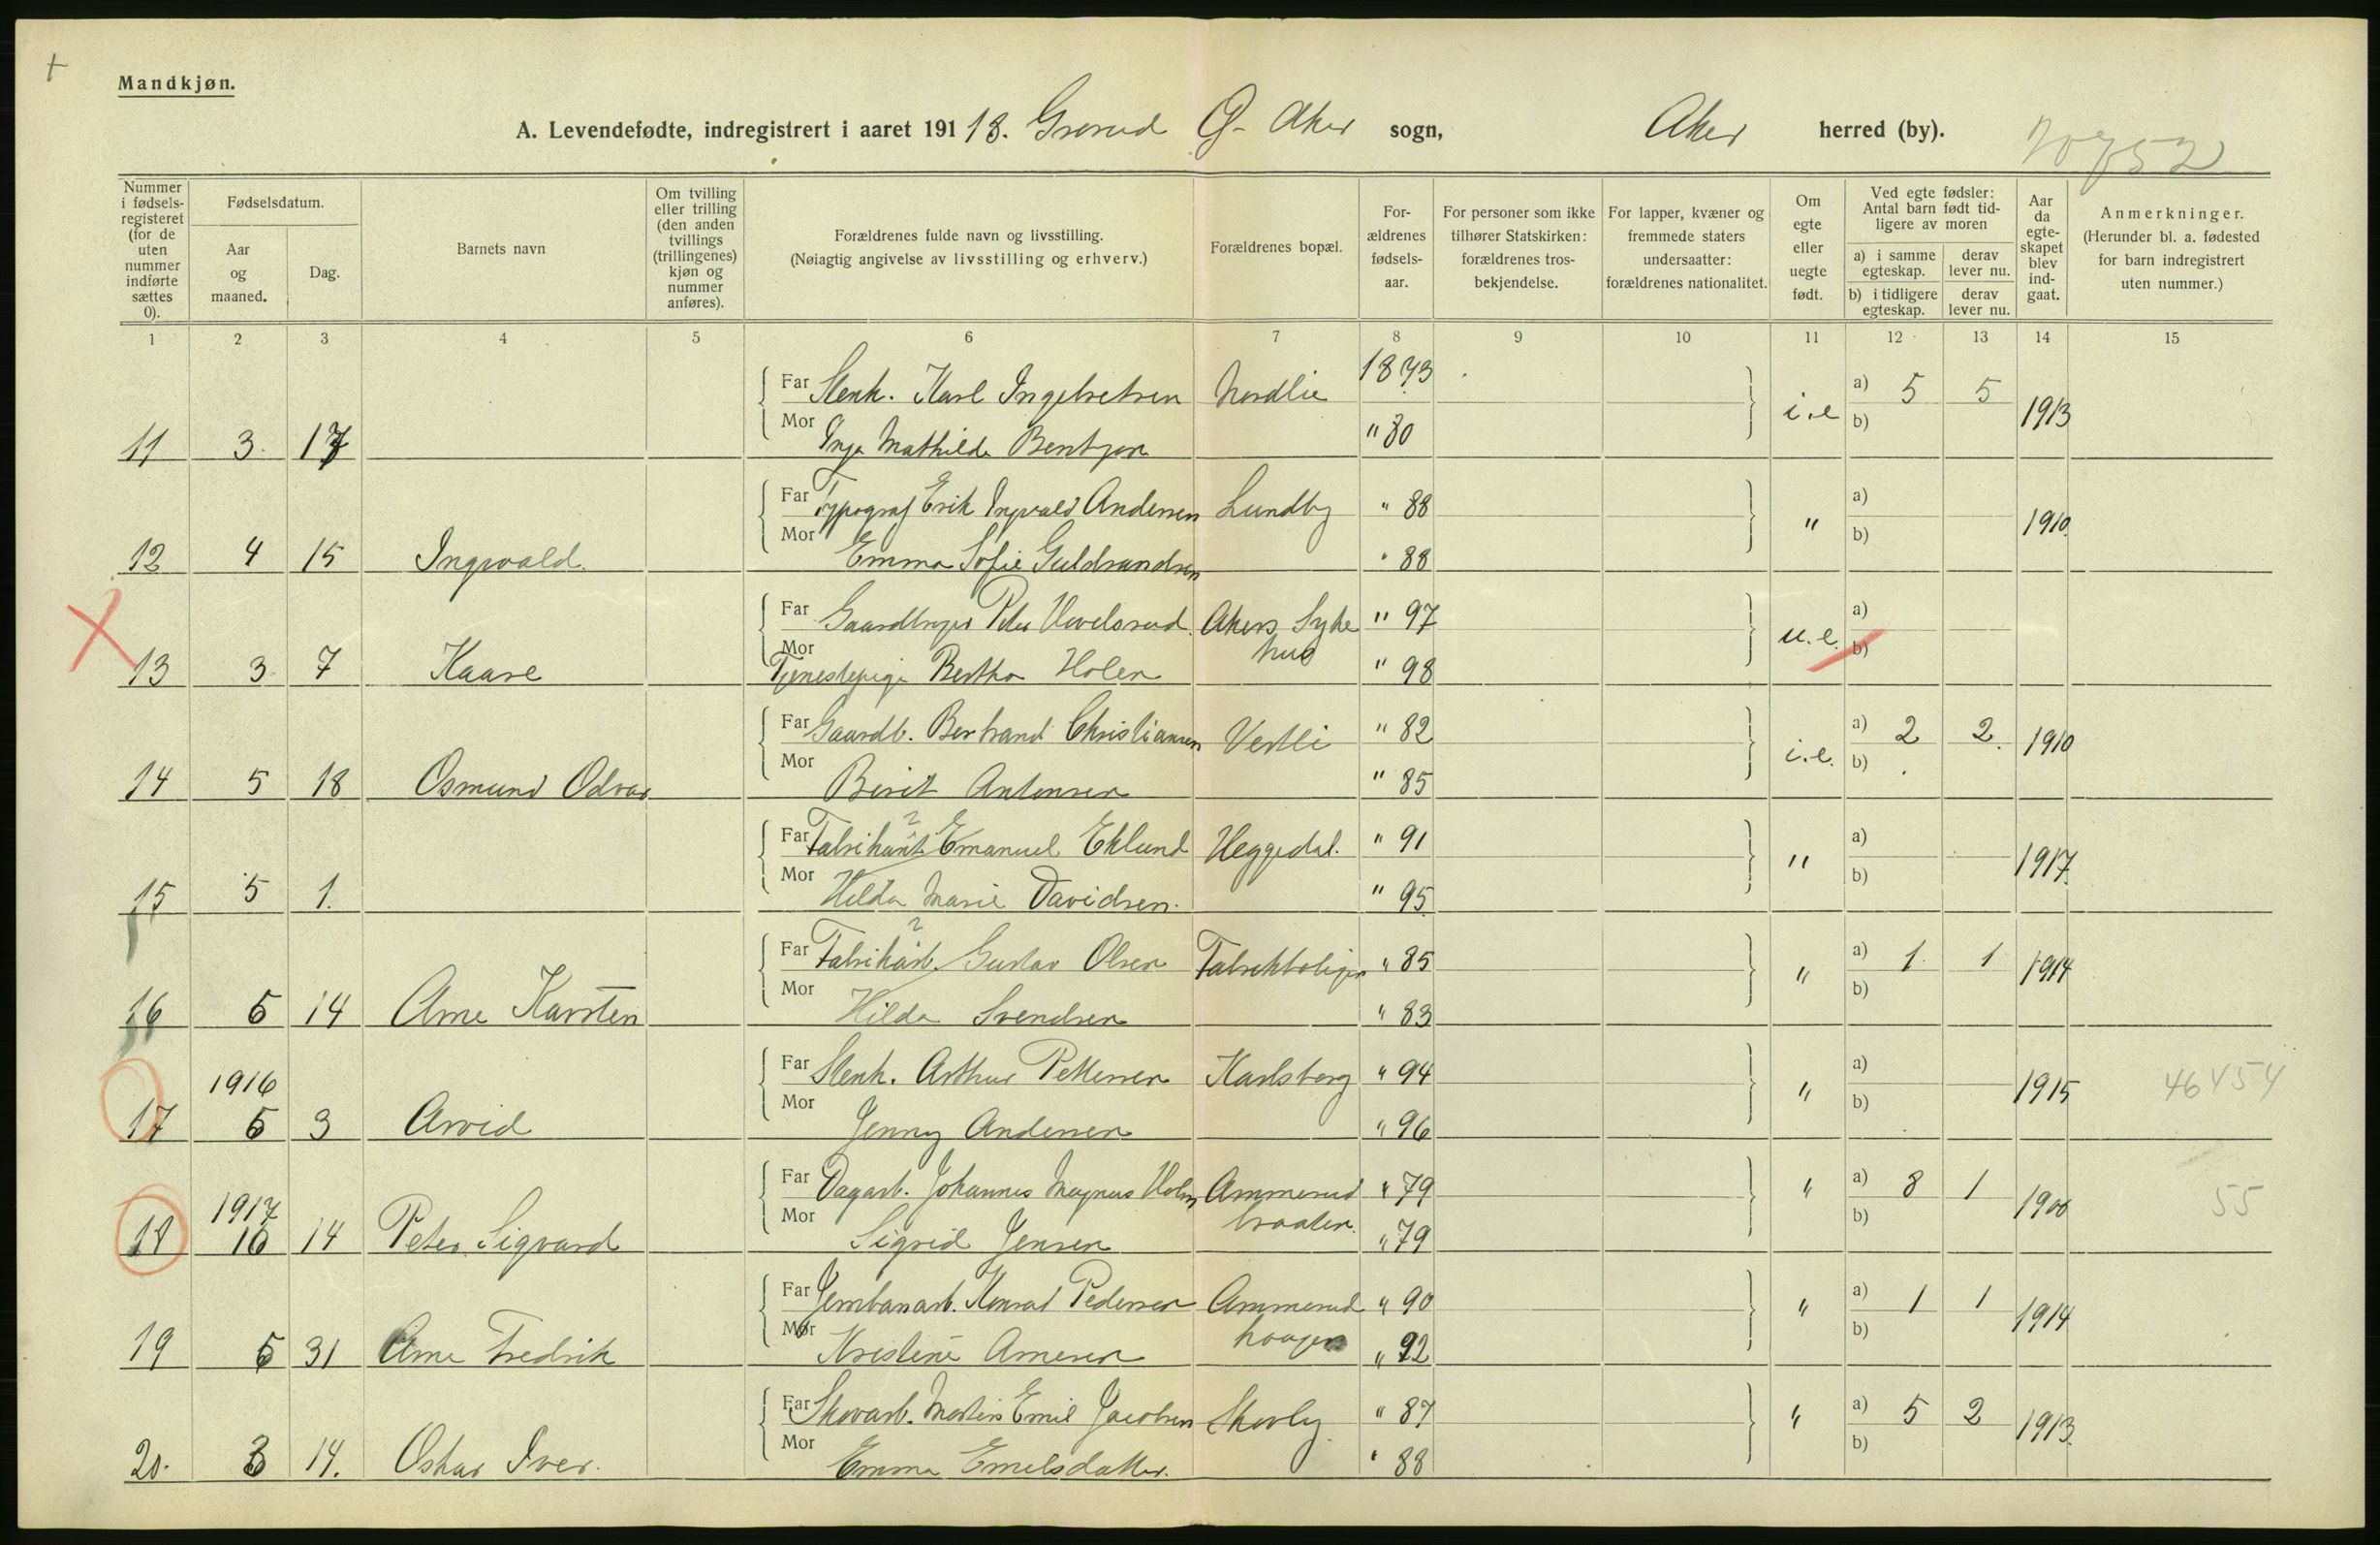 Mandkjøn.
A. Levendefødte, indregistrert i aaret 191 18. Grorud Ø. Aker sogn, Aker herred (by).
Nummer i fødsels-registeret (for de uten nummer indførte sættes 0).
Fødselsdatum.
Aar og maaned.
Dag.
Barnets navn
Om tvilling eller trilling (den anden tvillings (trillingenes) kjøn og nummer anføres).
Forældrenes fulde navn og livsstilling.
(Nøiagtig angivelse av livsstilling og erhverv.)
Forældrenes bopæl.
For-ældrenes fødsels-aar.
For personer som ikke tilhører Statskirken: forældrenes tros-bekjendelse.
For lapper, kvæner og fremmede staters undersaatter: forældrenes nationalitet.
Om egte eller uegte født.
Ved egte fødsler: Antal barn født tid-ligere av moren
a) i samme egteskap.
derav lever nu.
b) i tidligere egteskap.
derav lever nu.
Aar da egte-skapet blev ind-gaat.
Anmerkninger.
(Herunder bl. a. fødested for barn indregistrert uten nummer.)
1 2 3 4 5 6 7 8 9 10 11 12 13 14 15
Far Stenh. Karl Ingebretsen Nordlie 1873 i.e a) 5 5 1913
11 3 17 Mor Inga Mathilde Bentzen " 80 b)
Far Typograf Erik Ingvald Andersen Lundby " 88 " a) 1910
12 4 15 Ingvald Mor Emma Sofie Guldbrandsen " 88 b)
Far Gaardbruger Peter Hovelsrud Akers Syke " 97 u.e. a)
hus
13 3 7 Kaare Mor Tjenestepige Bertha Holen " 98 b)
Far Gaardb. Bertrand Christiansen Vestli " 82 i.e. a) 2 2 1910
14 5 18 Osmund Odvar Mor Berit Antonsen " 85 b)
Far Fabrikant Emanuel Eklund Heggedal. " 91 " a) 1917
15 5 1. Mor Hilda Marie Davidsen. " 95 b)
Far Fabrikarb. Gustav Olsen Fabrikboligen " 85 " a) 1 1 1914
16 5 14 Arne Karsten Mor Hilda Svendsen " 83 b)
1916 Far Stenh. Arthur Pettersen Karlsborg " 94 " a) 1915 46454
17 5 3 Arvid Mor Jenny Andersen " 96 b)
1917 Far Dagarb. Johannes Magnus Holm Ammerud " 79 " a) 8 1 1900 55
braaten.
18 10 14 Peter Sigvard Mor Sigrid Jensen " 79 b)
Far Jernbanarb. Konrad Pedersen Ammerud " 90 " a) 1 1 1914
haagen
19 5 31 Arne Fredrik Mor Kristine Arnesen " 92 b)
Far Skovarb. Martin Emil Jacobsen Skovly " 87 " a) 5 2 1913.
20. 3 14. Oskar Iver. Mor Emma Emilsdatter. " 88 b)